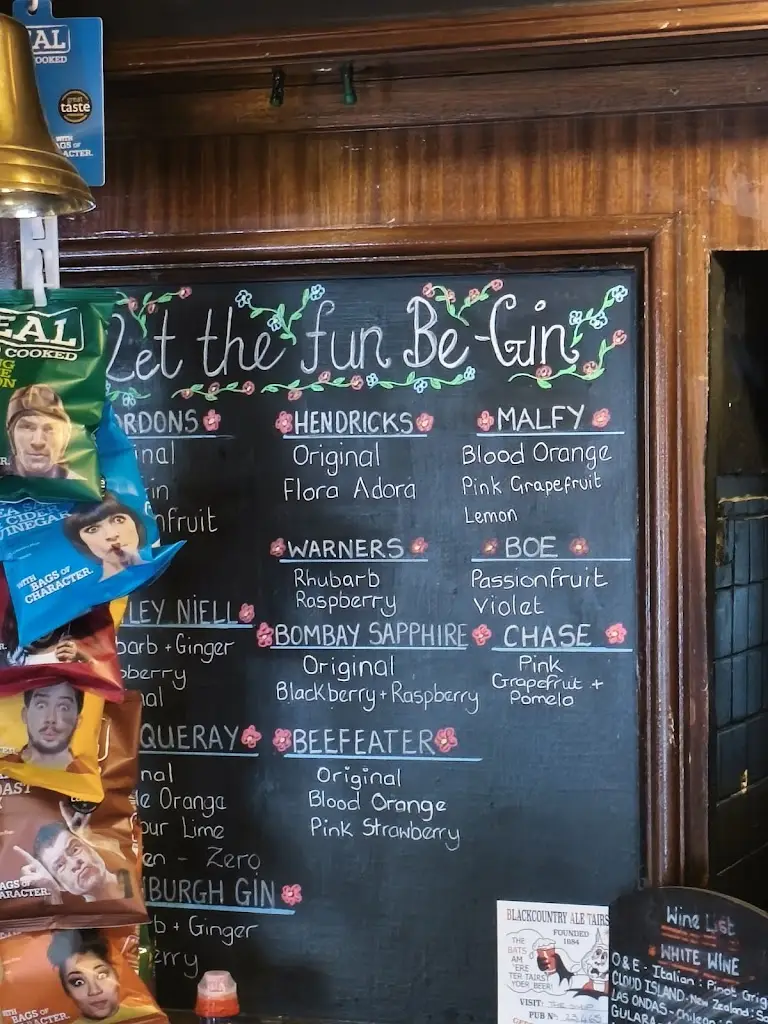 Let the fun Be-Gin
RDONS
nal
in
nfruit
LEY NIELL
barb + Ginger
berry
nal
QUERAY
nal
le Orange
our Lime
en - Zero
BURGH GIN
b + Ginger
erry
HENDRICKS
Original
Flora Adora
WARNERS
Rhubarb
Raspberry
BOMBAY SAPPHIRE
Original
Blackberry + Raspberry
BEEFEATER
Original
Blood Orange
Pink Strawberry
MALFY
Blood Orange
Pink Grapefruit
Lemon
BOE
Passionfruit
Violet
CHASE
Pink
Grapefruit +
Pomelo
AL
OOKED
great
taste
WITH
AGS OF
ACTER.
EAL
COOKED
NG
E
ON
R.
EA SAL
& CIDER
VINEGAR
WITH BAGS OF
CHARACTER.
OAST
AGS OF
ARACTER.
WITH
BAGS OF
BLACKCOUNTRY ALE TAIRS
FOUNDED
1984
THE
BATS
AM
'ERE
TER TAIRST
YOER BEER!
VISIT: THE
PUB Nº
Wine List
WHITE WINE
O & E - Italian : Pinot Grig
CLOUD ISLAND - New Zealand : Sa
LAS ONDAS - Chilean
GULARA